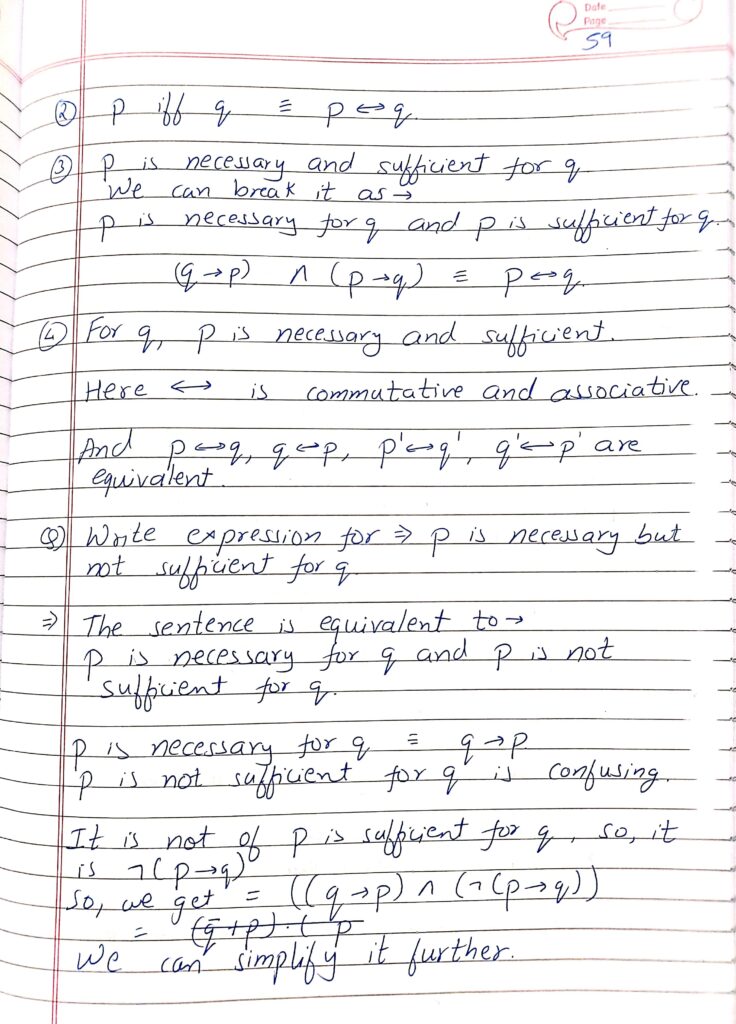 Date
Page
59
② p iff q ≡ p ↔ q.
③ p is necessary and sufficient for q
We can break it as →
p is necessary for q and p is sufficient for q.
(q → p) ∧ (p → q) ≡ p ↔ q.
④ For q, p is necessary and sufficient.
Here ↔ is commutative and associative.
And p ↔ q, q ↔ p, p' ↔ q', q' ↔ p' are
equivalent.
Q) Write expression for ⇒ p is necessary but
not sufficient for q
⇒ The sentence is equivalent to →
p is necessary for q and p is not
sufficient for q.
p is necessary for q ≡ q → p
p is not sufficient for q is confusing.
It is not of p is sufficient for q, so, it
is ¬(p → q)
So, we get = ((q → p) ∧ (¬(p → q))
= (q̄ + p) · ( p
We can simplify it further.